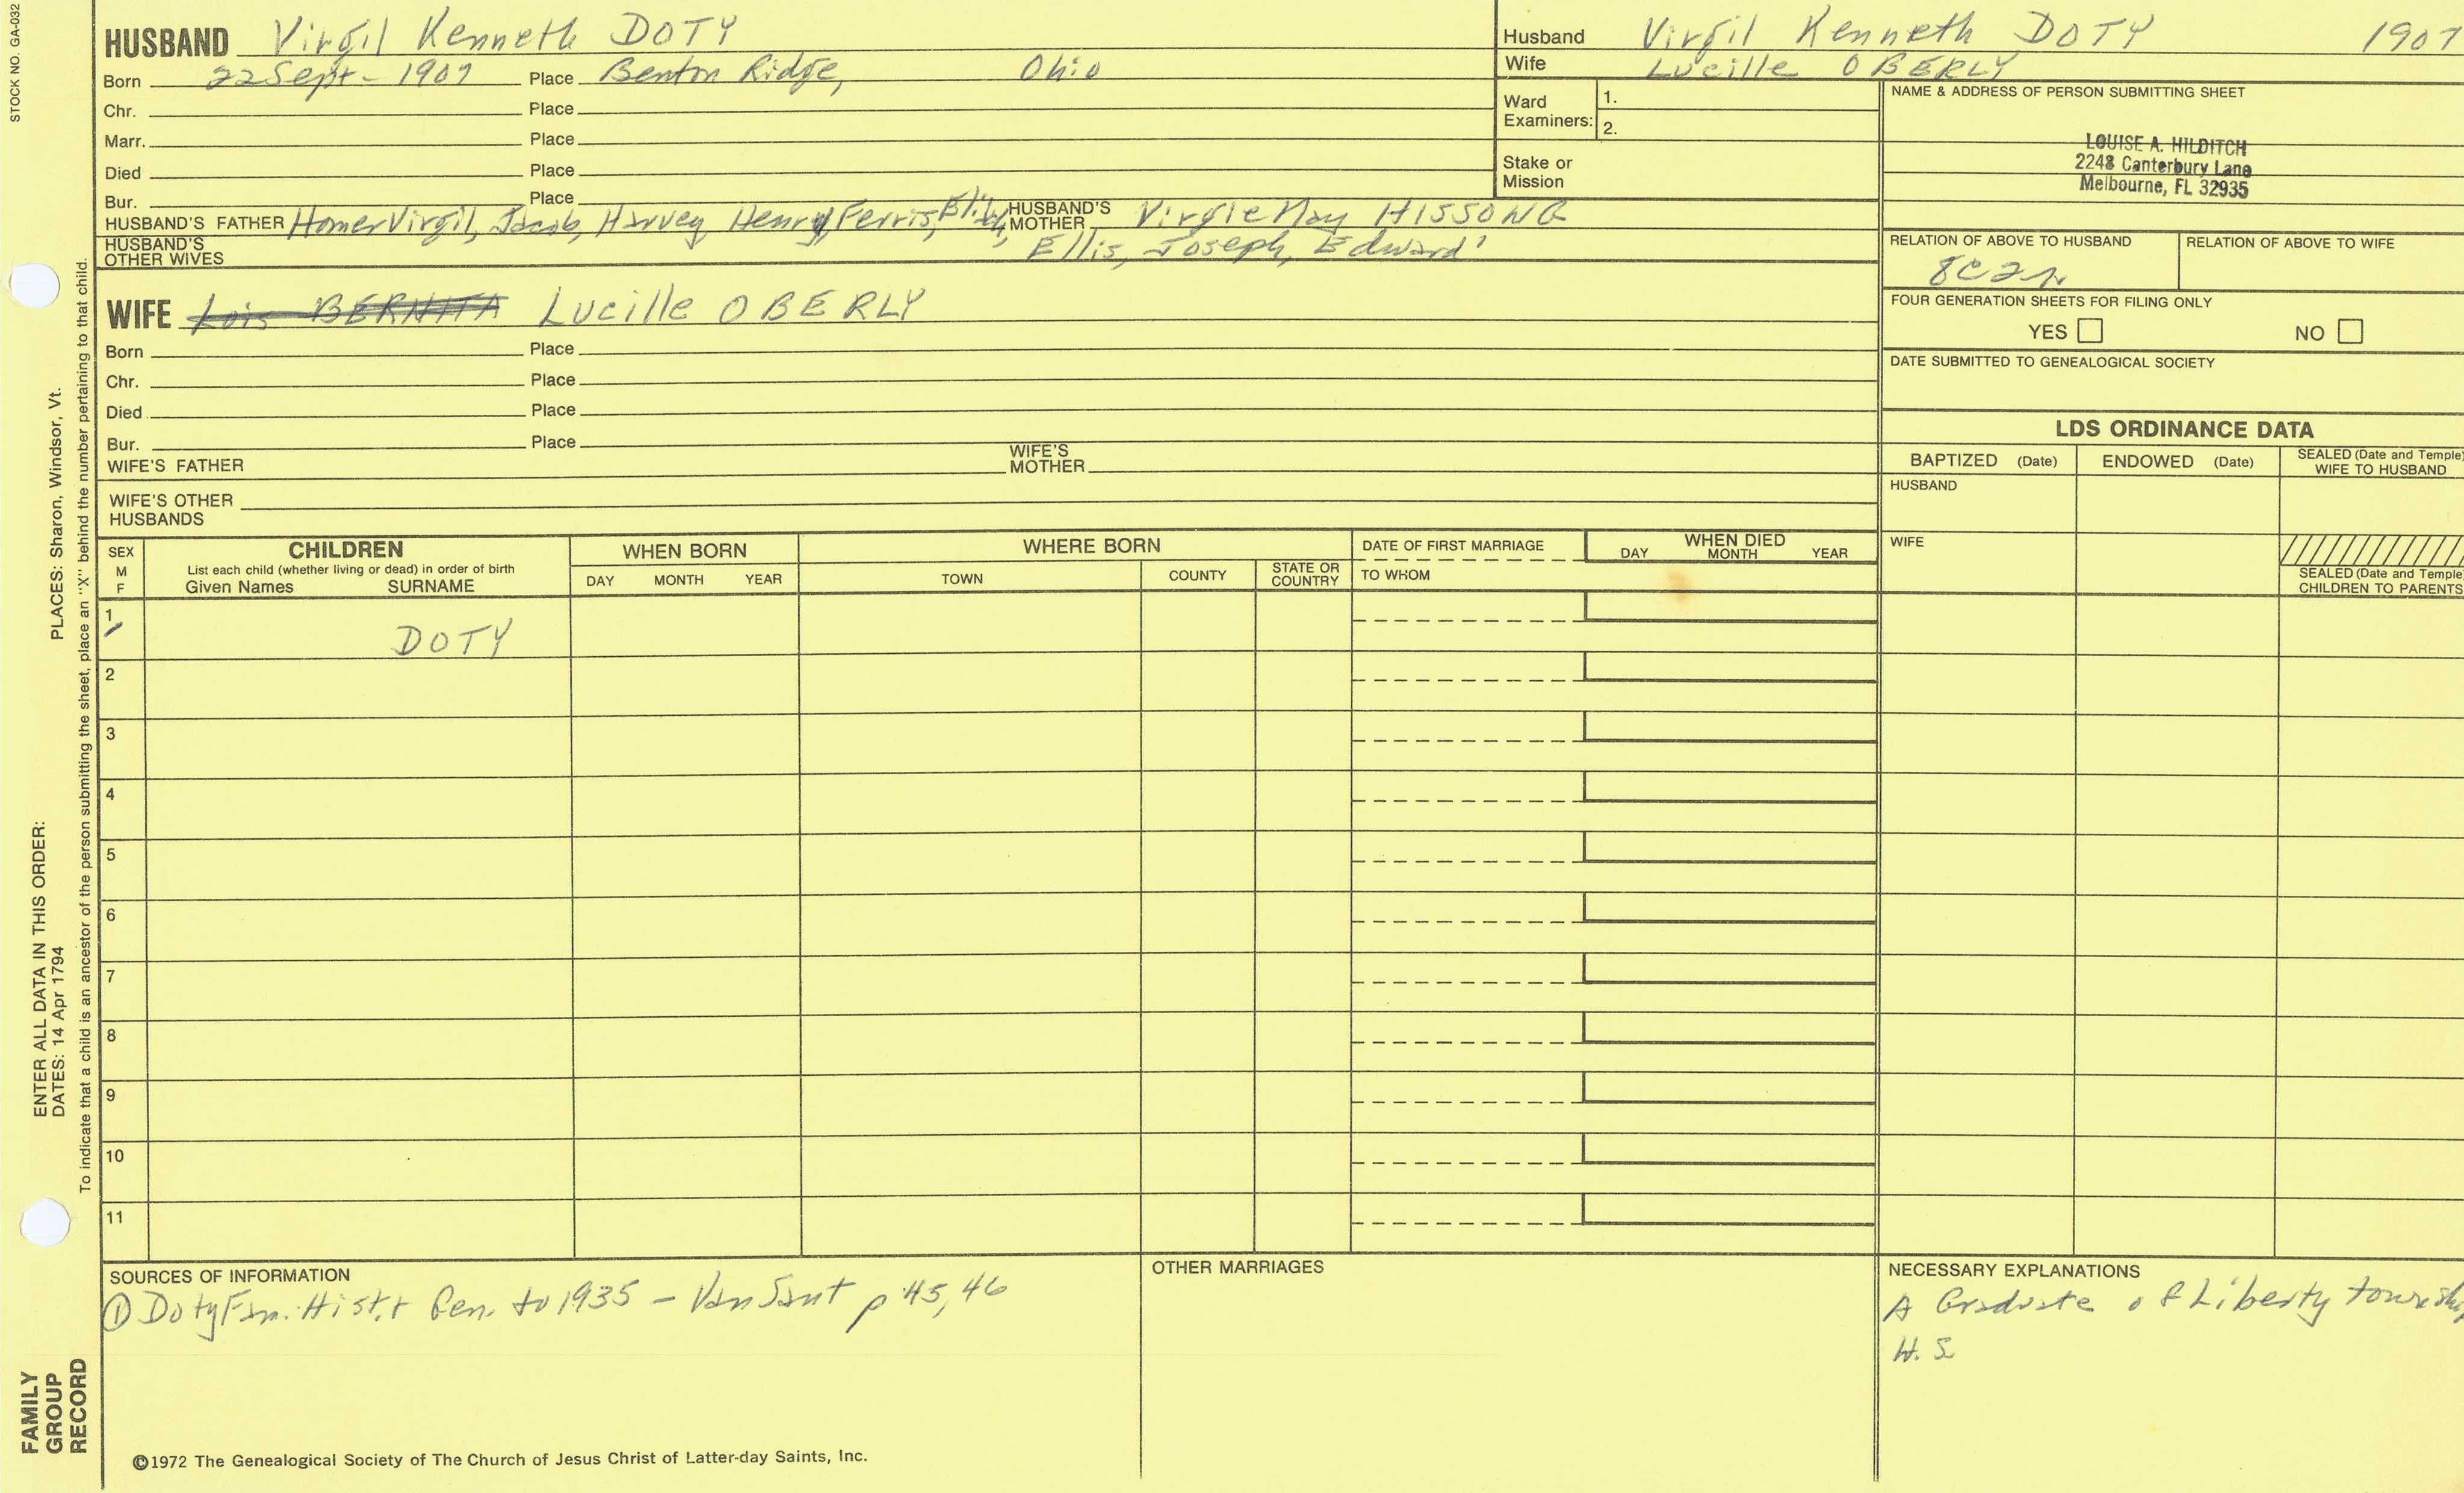 STOCK NO. GA-032
HUSBAND Virgil Kenneth DOTY
Born 22 Sept - 1907 Place Benton Ridge, Ohio
Chr. Place
Marr. Place
Died Place
Bur. Place
HUSBAND'S FATHER Homer Virgil, Jacob, Harvey, Henry, Ferris, HUSBAND'S MOTHER Virgie May HISSONG
Ellis, Joseph, Edward'
HUSBAND'S OTHER WIVES
Husband Virgil Kenneth DOTY 1907
Wife Lucille OBERLY
Ward Examiners: 1.
2.
Stake or Mission
NAME & ADDRESS OF PERSON SUBMITTING SHEET
LOUISE A. HILDITCH
2248 Canterbury Lane
Melbourne, FL 32935
RELATION OF ABOVE TO HUSBAND RELATION OF ABOVE TO WIFE
8C2r
FOUR GENERATION SHEETS FOR FILING ONLY
YES NO
DATE SUBMITTED TO GENEALOGICAL SOCIETY
WIFE Lois BERNITA Lucille OBERLY
Born Place
Chr. Place
Died Place
Bur. Place
WIFE'S FATHER WIFE'S MOTHER
WIFE'S OTHER HUSBANDS
LDS ORDINANCE DATA
BAPTIZED (Date) ENDOWED (Date) SEALED (Date and Temple) WIFE TO HUSBAND
HUSBAND
WIFE
SEALED (Date and Temple) CHILDREN TO PARENTS
SEX M F
CHILDREN
List each child (whether living or dead) in order of birth
Given Names SURNAME
WHEN BORN
DAY MONTH YEAR
WHERE BORN
TOWN COUNTY STATE OR COUNTRY
DATE OF FIRST MARRIAGE
TO WHOM
WHEN DIED
DAY MONTH YEAR
1 DOTY
2
3
4
5
6
7
8
9
10
11
SOURCES OF INFORMATION
① Doty Fam. Hist. + Gen. to 1935 - Van Sant p 45, 46
OTHER MARRIAGES
NECESSARY EXPLANATIONS
A Graduate of Liberty township
H. S
©1972 The Genealogical Society of The Church of Jesus Christ of Latter-day Saints, Inc.
FAMILY GROUP RECORD
ENTER ALL DATA IN THIS ORDER:
DATES: 14 Apr 1794 PLACES: Sharon, Windsor, Vt.
To indicate that a child is an ancestor of the person submitting the sheet, place an "X" behind the number pertaining to that child.